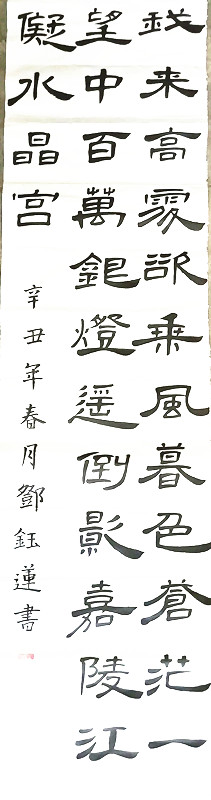 我来高處欲乘風暮色蒼茫一
望中百萬鉅燈遥倒影嘉陵江
儗水晶宫
辛丑年春月鄧鈺蓮書